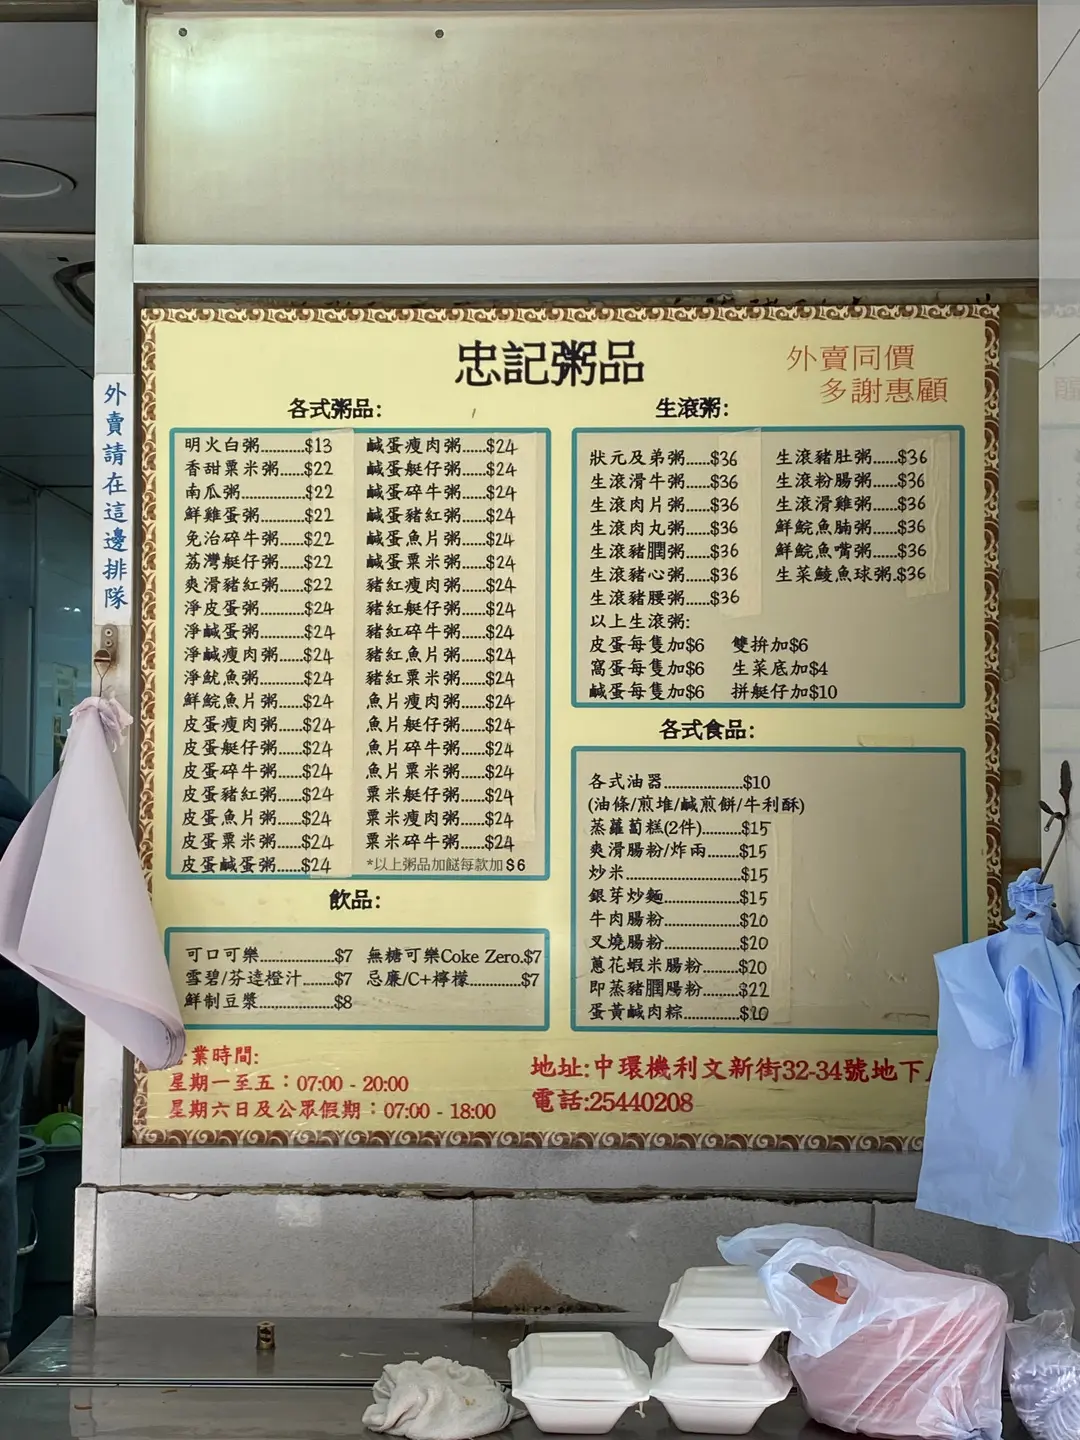 忠記粥品
外賣同價
多謝惠顧
外賣請在這邊排隊
各式粥品:
明火白粥......$13
香甜粟米粥...$22
南瓜粥..............$22
鮮雞蛋粥........$22
免治碎牛粥.....$22
荔灣艇仔粥.....$22
爽滑豬紅粥.....$22
淨皮蛋粥........$24
淨鹹蛋粥........$24
淨鹹瘦肉粥.....$24
淨魷魚粥........$24
鮮鯇魚片粥.....$24
皮蛋瘦肉粥.....$24
皮蛋艇仔粥.....$24
皮蛋碎牛粥.....$24
皮蛋豬紅粥.....$24
皮蛋魚片粥.....$24
皮蛋粟米粥.....$24
皮蛋鹹蛋粥.....$24
鹹蛋瘦肉粥.....$24
鹹蛋艇仔粥.....$24
鹹蛋碎牛粥.....$24
鹹蛋豬紅粥.....$24
鹹蛋魚片粥.....$24
鹹蛋粟米粥.....$24
豬紅瘦肉粥.....$24
豬紅艇仔粥.....$24
豬紅碎牛粥.....$24
豬紅魚片粥.....$24
豬紅粟米粥.....$24
魚片瘦肉粥.....$24
魚片艇仔粥.....$24
魚片碎牛粥.....$24
魚片粟米粥.....$24
粟米艇仔粥.....$24
粟米瘦肉粥.....$24
粟米碎牛粥.....$24
*以上粥品加餸每款加$6
飲品:
可口可樂..................$7
雪碧/芬達橙汁.......$7
鮮制豆漿..................$8
無糖可樂Coke Zero.$7
忌廉/C+檸檬............$7
生滾粥:
狀元及弟粥.....$36
生滾滑牛粥.....$36
生滾肉片粥.....$36
生滾肉丸粥.....$36
生滾豬膶粥.....$36
生滾豬心粥.....$36
生滾豬腰粥.....$36
生滾豬肚粥.....$36
生滾粉腸粥.....$36
生滾滑雞粥.....$36
鮮鯇魚腩粥.....$36
鮮鯇魚嘴粥.....$36
生菜鯪魚球粥.$36
以上生滾粥:
皮蛋每隻加$6 雙拚加$6
窩蛋每隻加$6 生菜底加$4
鹹蛋每隻加$6 拼艇仔加$10
各式食品:
各式油器......................$10
(油條/煎堆/鹹煎餅/牛利酥)
蒸蘿蔔糕(2件)...........$15
爽滑腸粉/炸兩..........$15
炒米............................$15
銀芽炒麵....................$15
牛肉腸粉....................$20
叉燒腸粉....................$20
蔥花蝦米腸粉...........$20
即蒸豬膶腸粉...........$22
蛋黃鹹肉粽................$20
業時間:
星期一至五:07:00 - 20:00
星期六日及公眾假期:07:00 - 18:00
地址:中環機利文新街32-34號地下
電話:25440208